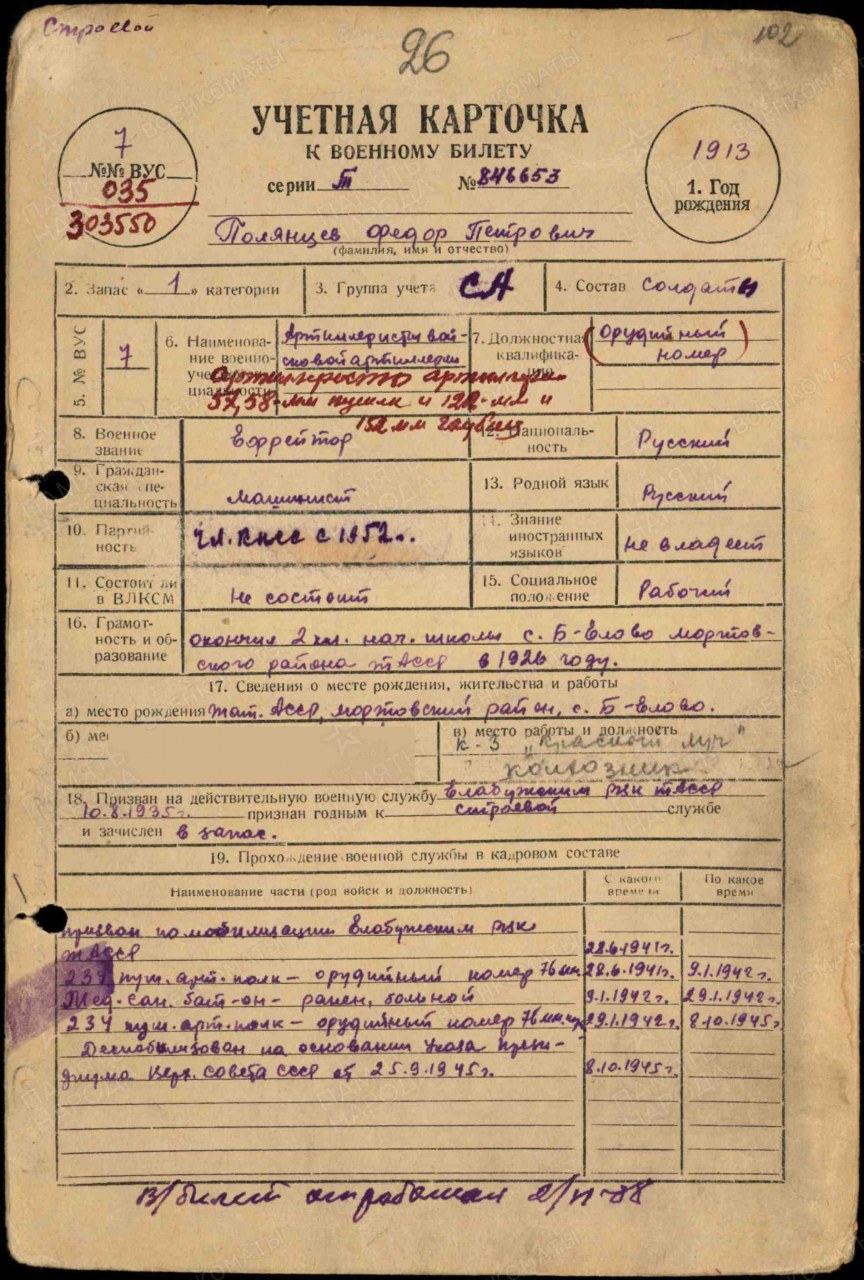 Строевой
26
102
УЧЕТНАЯ КАРТОЧКА
К ВОЕННОМУ БИЛЕТУ
серии Т № 846653
7
№№ ВУС
035
303550
1913
1. Год рождения
Полянцев Федор Петрович
(фамилия, имя и отчество)
2. Запас « 1 » категории
3. Группа учета СА
4. Состав Солдаты
5. № ВУС 7
6. Наименова-
ние военно-
уче
циальности
Артиллеристы вой-
сковой артиллерии
артиллерии
57,58-мм пушек и 122-мм и
152 мм гаубиц
7. Должностная
квалифика-
ция
орудийный
номер
8. Военное
звание
Ефрейтор
12. Националь-
ность
Русский
9. Граждан-
ская спе-
циальность
Машинист
13. Родной язык
Русский
10. Партий-
ность
чл. КПСС с 1952 г.
14. Знание
иностранных
языков
не владеет
11. Состоит ли
в ВЛКСМ
Не состоит
15. Социальное
положение
Рабочий
16. Грамот-
ность и об-
разование
окончил 2 кл. нач. школы с. Б-Елово Мортов-
ского района ТАССР в 1926 году.
17. Сведения о месте рождения, жительства и работы
а) место рождения Тат. АССР, Мортовский район, с. Б-Елово.
б) ме
в) место работы и должность
к-з "Красный луч"
колхозник
18. Призван на действительную военную службу Елабужским РВК ТАССР
10.8.1935 г. признан годным к строевой службе
и зачислен в запас.
19. Прохождение военной службы в кадровом составе
Наименование части (род войск и должность)
С какого
времени
По какое
время
призван по мобилизации Елабужским РВК
ТАССР 28.6.1941 г.
234 пуш. арт. полк – орудийный номер 76 мм. 28.6.1941 г. 9.1.1942 г.
Мед. сан. бат-он – ранен, больной 9.1.1942 г. 29.1.1942 г.
234 пуш. арт. полк – орудийный номер 76 мм. 29.1.1942 г. 8.10.1945 г.
Демобилизован на основании Указа прези-
диума Верх. Совета СССР от 25.9.1945 г. 8.10.1945 г.
В/билет отработан